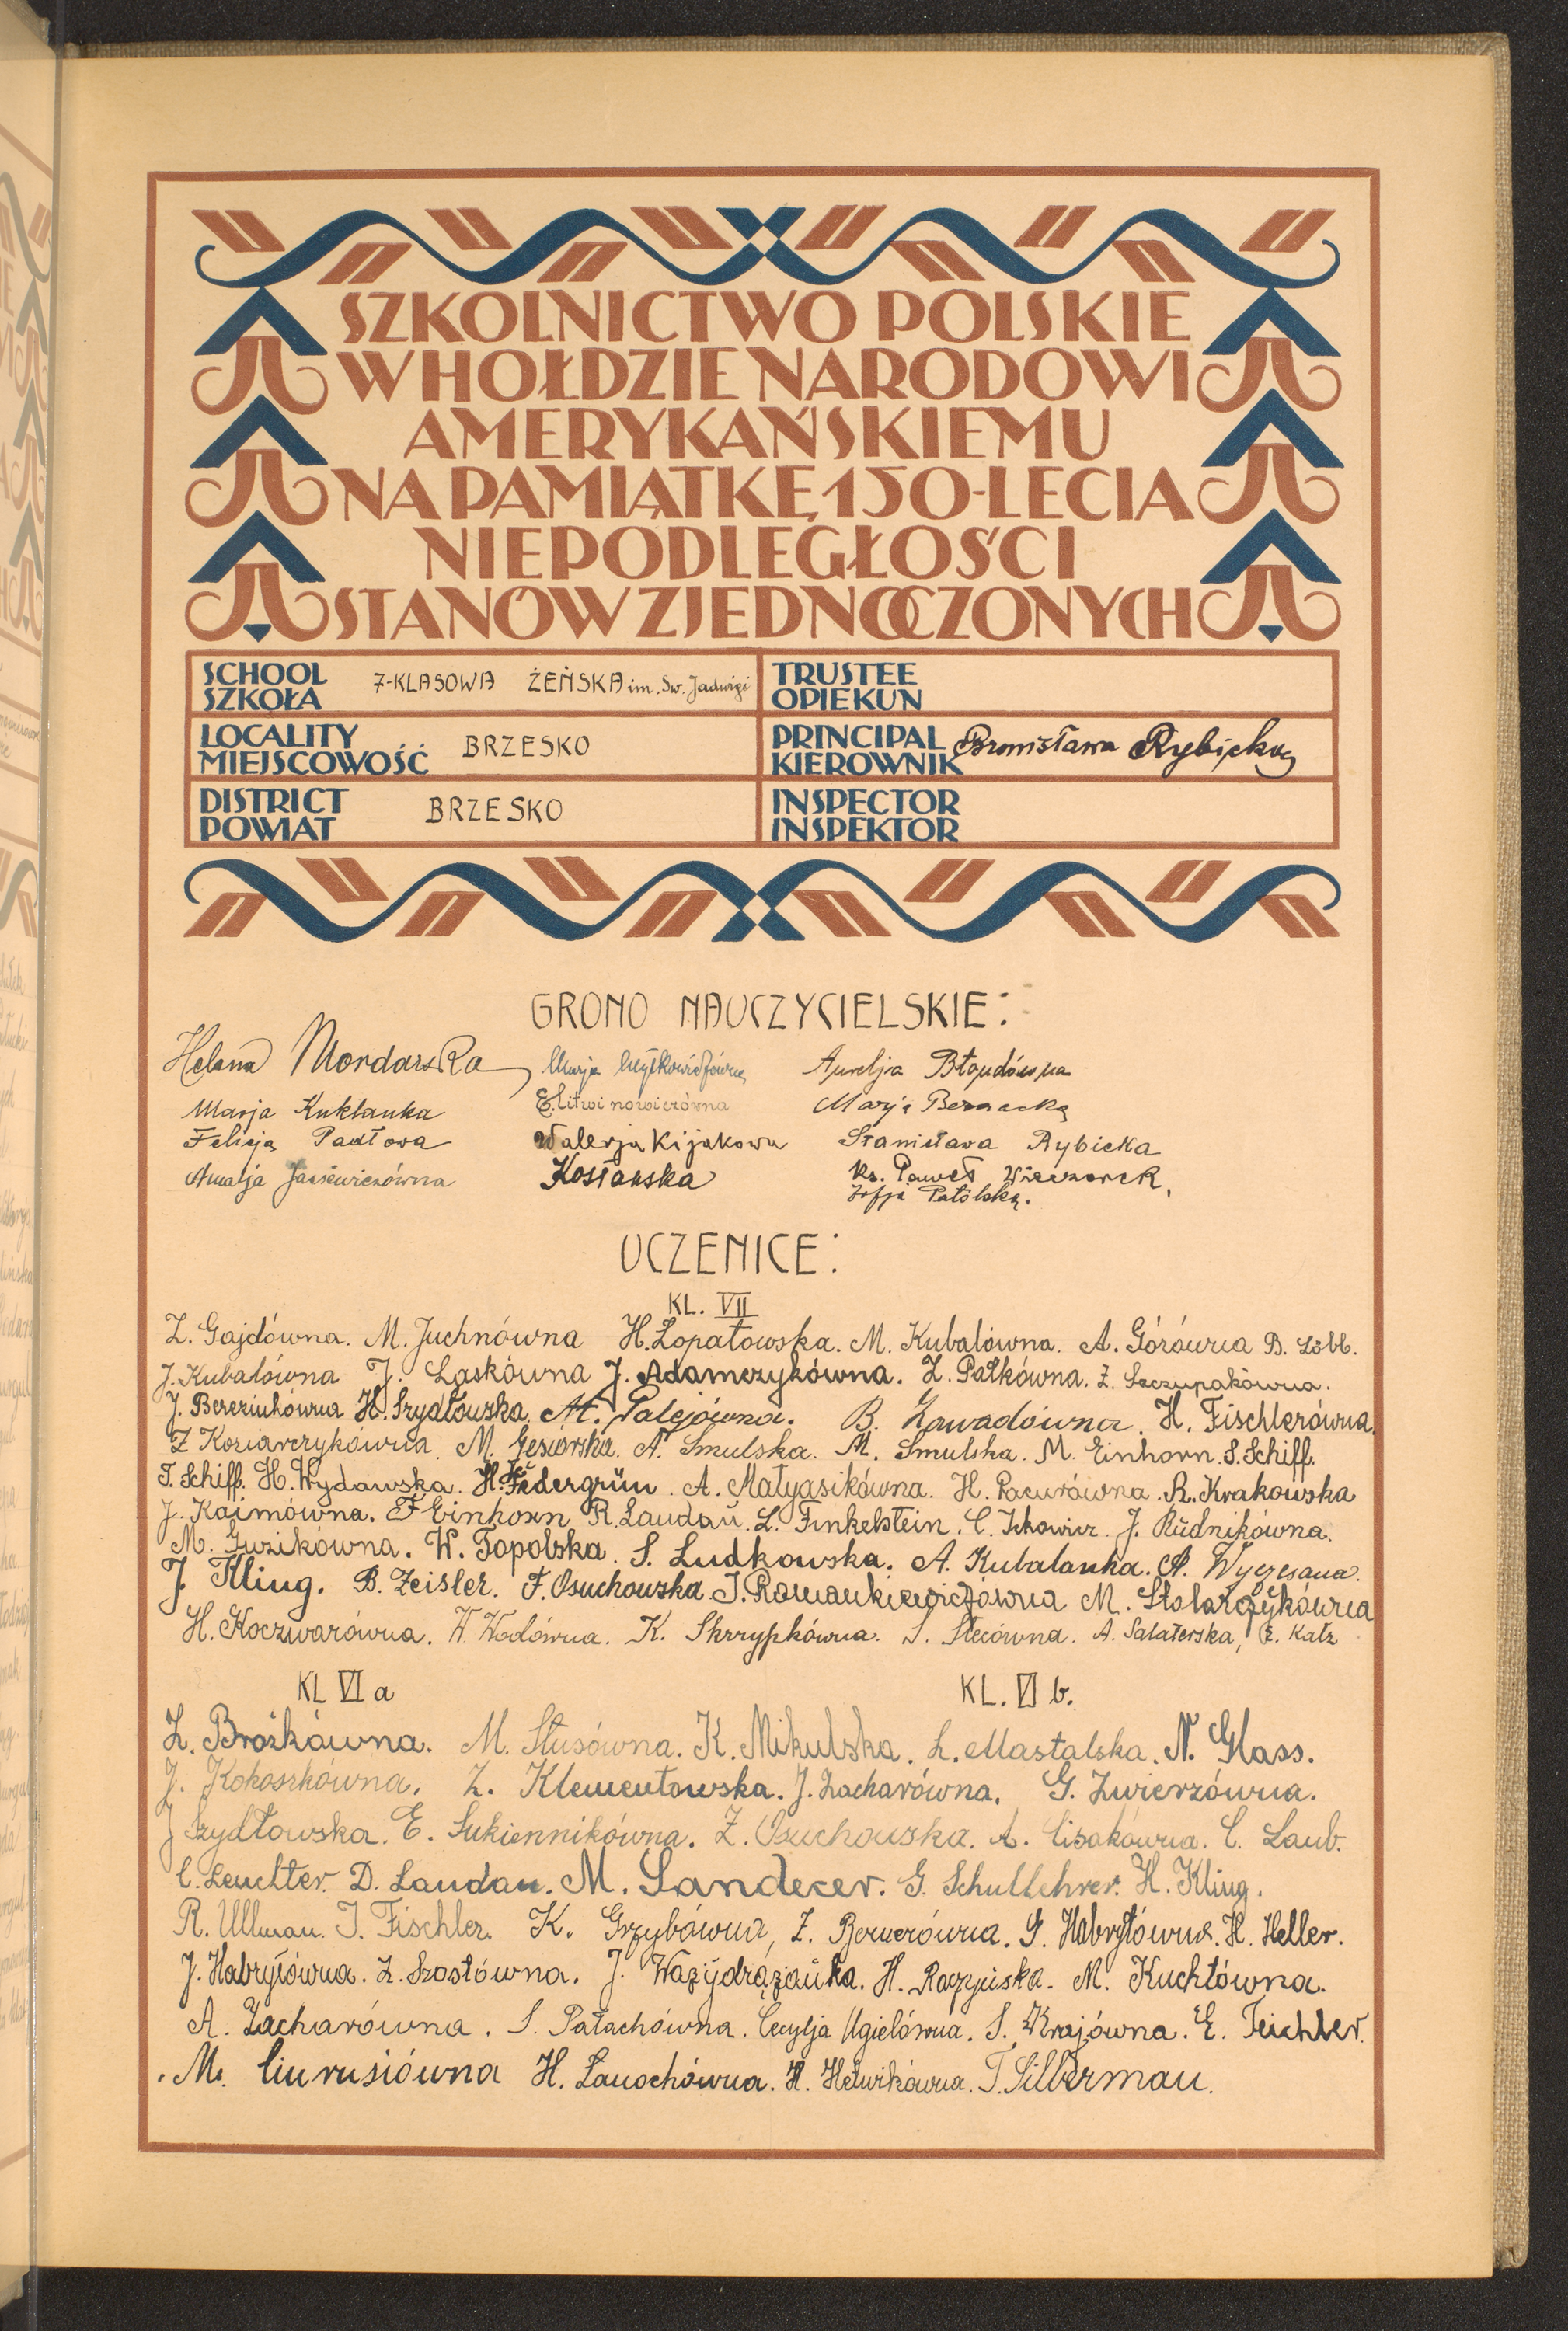 SZKOLNICTWO POLSKIE
W HOŁDZIE NARODOWI
AMERYKAŃSKIEMU
NA PAMIĄTKĘ 150-LECIA
NIEPODLEGŁOŚCI
STANÓW ZJEDNOCZONYCH
SCHOOL
SZKOŁA 7-KLASOWA ŻEŃSKA im. Św. Jadwigi
TRUSTEE
OPIEKUN
LOCALITY
MIEJSCOWOŚĆ BRZESKO
PRINCIPAL
KIEROWNIK Bronisława Rybicka
DISTRICT
POWIAT BRZESKO
INSPECTOR
INSPEKTOR
GRONO NAUCZYCIELSKIE:
Helena Mordarska Marja Aurelja Błondówna
Marja Kuklanka E. Litwinowiczówna Marja Bernacka
Felicja Padłowa Walerja Kijakowa Stanisława Rybicka
Amalja Jasiewiczówna Kostańska Ks. Paweł Wieczorek,
Zofja Patolska.
UCZENICE:
KL. VII
Z. Gajdówna. M. Juchnówna H. Łopatowska. M. Kubalówna. A. Górówna B. Löbl.
J. Kubalówna J. Laskówna J. Adamczykówna. Z. Pałkówna. Z. Szczupakówna.
J. Bereziuhówna H. Szydłowska. M. Palejówna. B. Zawadówna. H. Fischlerówna.
Z Koziarczykówna. M. Gęsiorska. A. Smulska. M. Smulska. M. Einhorn. S. Schiff.
T. Schiff. H. Wydawska. H. Federgrün. A. Matyasikówna. H. Pacurówna. R. Krakowska
J. Kaimówna. F Einhorn R. Landau. L. Finkelstein. C. Ickowicz. J. Rudnikówna.
M. Guzikówna. W. Topolska. S. Ludkowska. A. Kubalanka. A. Wyczesana.
J. Kling. B. Zeisler. F. Osuchowska J. Romankiewiczówna M. Stolarczykówna
H. Koczwarówna. W. Wodówna. K. Skrzypkówna. S. Stecówna. A. Salaterska, E. Katz
KL VI a KL. VI b.
Z. Brożkówna. M. Stusówna. K. Mikulska. L. Mastalska. N. Glass.
J. Kokoszkówna. Z. Klementowska. J. Zacharówna. G. Zwierzówna.
J Szydłowska. E. Sukiennikówna. Z. Osuchowska. A. Cisakówna. C. Laub.
C. Leuchter. D. Landau. M. Sandecer. G. Schullehrer. H. Kling.
R. Ullman. J. Fischler. K. Grzybówna, Z. Bernerówna. G. Habryłówna. H. Heller.
J. Habryłówna. Z. Szostówna. J. H. Raczyńska. M. Kuchtówna.
A. Zacharówna. S. Pałachówna. Cecylja Ugielówna. S. Krajówna. E. Teichler.
M. H. Lanochówna. H. Helwikówna. T. Silberman.